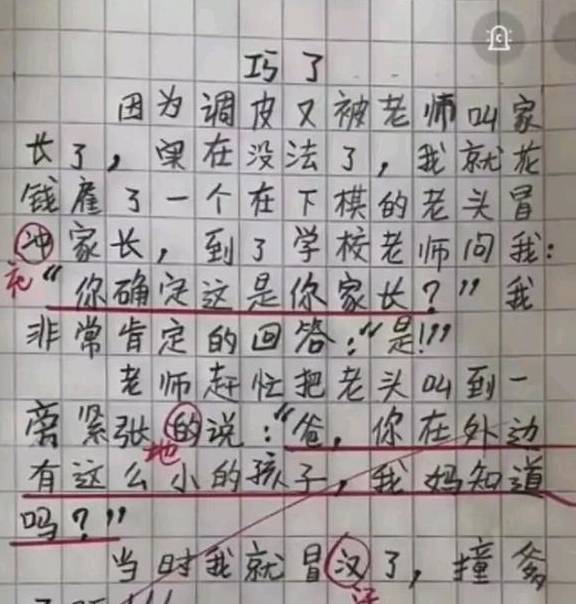 巧了
因为调皮又被老师叫家
长了，实在没法了，我就花
钱雇了一个在下棋的老头冒
冲家长，到了学校老师问我：
充
“你确定这是你家长？”我
非常肯定的回答：“是!!!”
老师赶忙把老头叫到一
旁紧张的说：“爸，你在外边
地
有这么小的孩子，我妈知道
吗？”
当时我就冒汉了，撞爹